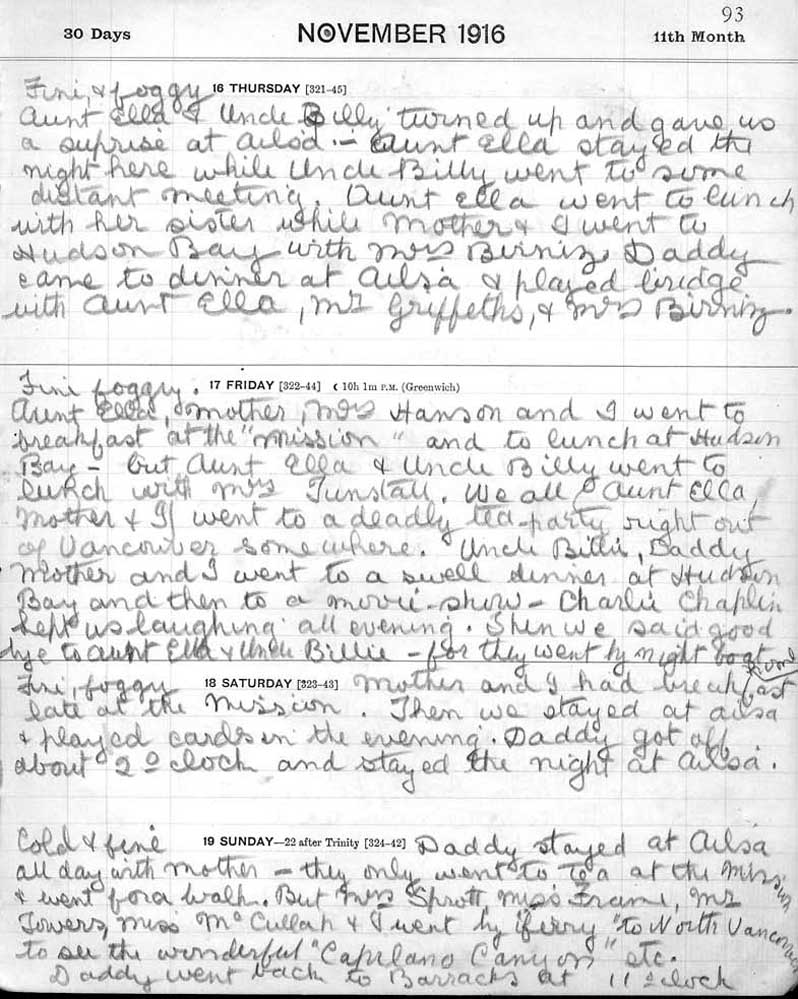 93
30 Days NOVEMBER 1916 11th Month
Fini, & foggy 16 THURSDAY [321-45]
Aunt Ella & Uncle Billy turned up and gave us
a suprise at Ailsa - Aunt Ella stayed the
night here while Uncle Billy went to some
distant meeting. Aunt Ella went to lunch
with her sister while Mother & I went to
Hudson Bay with Mrs Birniz. Daddy
came to dinner at Ailsa & played bridge
with Aunt Ella, Mr Griffeths, & Mrs Birniz.
Fini foggy. 17 FRIDAY [322-44] ☾ 10h 1m P.M. (Greenwich)
Aunt Ella, Mother, Mrs Hanson and I went to
breakfast at the "Mission" and to lunch at Hudson
Bay - but Aunt Ella & Uncle Billy went to
lunch with Mrs Tunstall. We all Aunt Ella,
Mother & I went to a deadly tea-party right out
of Vancouver somewhere. Uncle Billie, Daddy
Mother and I went to a swell dinner at Hudson
Bay and then to a movie-show - Charlie Chaplin
kept us laughing all evening. Then we said good
bye to Aunt Ella & Uncle Billie - for they went by night boat
Fini, foggy 18 SATURDAY [323-43] Mother and I had breakfast
late at the Mission. Then we stayed at Ailsa
& played cards in the evening. Daddy got off
about 2 o clock and stayed the night at Ailsa.
Cold & fine 19 SUNDAY—22 after Trinity [324-42] Daddy stayed at Ailsa
all day with Mother - they only went to tea at the Mission
& went for a walk. But Mrs Sprott, Miss Frame, Mr
Towers, Miss McCullah & I went by ferry "to North Vancouver
to see the wonderful "Capilano Canyon" etc.
Daddy went back to Barracks at 11 o'clock